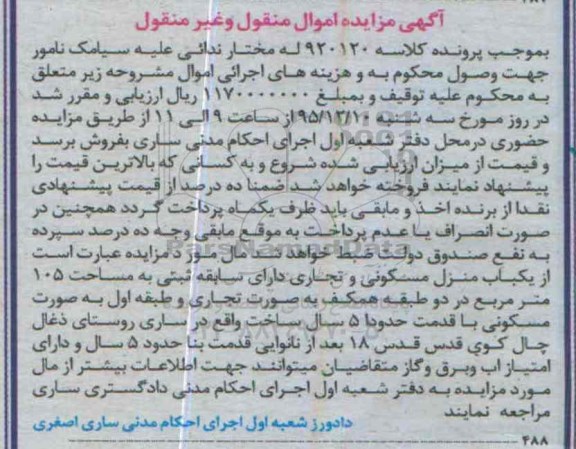 آگهی مزایده اموال منقول وغیر منقول
بموجب پرونده کلاسه ۹۲۰۱۲۰ له مختار ندائی علیه سیامک نامور
جهت وصول محکوم به و هزینه های اجرائی اموال مشروحه زیر متعلق
به محکوم علیه توقیف و بمبلغ ۱۱۷۰۰۰۰۰۰۰ ریال ارزیابی و مقرر شد
در روز مورخ سه شنبه ۹۵/۱۲/۱۰ از ساعت ۹ الی ۱۱ از طریق مزایده
حضوری درمحل دفتر شعبه اول اجرای احکام مدنی ساری بفروش برسد
و قیمت از میزان ارزیابی شده شروع و به کسانی که بالاترین قیمت را
پیشنهاد نمایند فروخته خواهد شد ضمنا ده درصد از قیمت پیشنهادی
نقدا از برنده اخذ و مابقی باید ظرف یکماه پرداخت گردد همچنین در
صورت انصراف یا عدم پرداخت به موقع مابقی وجه ده درصد سپرده
به نفع صندوق دولت ضبط خواهد شد مال مورد مزایده عبارت است
از یکباب منزل مسکونی و تجاری دارای سابقه ثبتی به مساحت ۱۰۵
متر مربع در دو طبقه همکف به صورت تجاری و طبقه اول به صورت
مسکونی با قدمت حدودا ۵ سال ساخت واقع در ساری روستای ذغال
چال کوی قدس قدس ۱۸ بعد از نانوایی قدمت بنا حدود ۵ سال و دارای
امتیاز اب وبرق وگاز متقاضیان میتوانند جهت اطلاعات بیشتر از مال
مورد مزایده به دفتر شعبه اول اجرای احکام مدنی دادگستری ساری
مراجعه نمایند
دادورز شعبه اول اجرای احکام مدنی ساری اصغری
۴۸۸
ParsNamadData